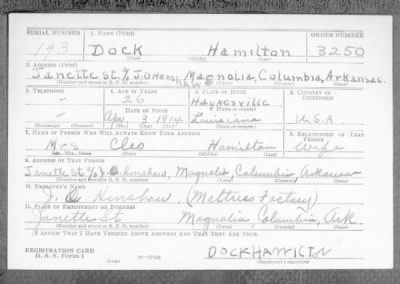 SERIAL NUMBER 1. NAME (Print) ORDER NUMBER
193 Dock Hamilton 3250
(First) (Middle) (Last)
2. ADDRESS (Print)
Janette St. % J.O Henshaw Magnolia, Columbia, Arkansas.
3. TELEPHONE 4. AGE IN YEARS 5. PLACE OF BIRTH 6. COUNTRY OF CITIZENSHIP
- 26 Haynesville
DATE OF BIRTH
- Apr. 3 1914 Louisiana U.S.A.
(Exchange) (Number) (Mo.) (Day) (Yr.) (State or country)
7. NAME OF PERSON WHO WILL ALWAYS KNOW YOUR ADDRESS 8. RELATIONSHIP OF THAT PERSON
Mrs Cleo Hamilton Wife
(Mr., Mrs., Miss) (First) (Middle) (Last)
9. ADDRESS OF THAT PERSON
Janette St % J.O. Henshaw, Magnolia Columbia Arkansas
(Number and street or R. F. D. number) (Town) (County) (State)
10. EMPLOYER'S NAME
J. O. Henshaw, (Mattress Factory)
11. PLACE OF EMPLOYMENT OR BUSINESS
Janette St Magnolia Columbia, Ark.
(Number and street or R. F. D. number) (Town) (County) (State)
I AFFIRM THAT I HAVE VERIFIED ABOVE ANSWERS AND THAT THEY ARE TRUE.
REGISTRATION CARD
D. S. S. Form 1 DOCKHAMILTN
(over) (Registrant's signature)